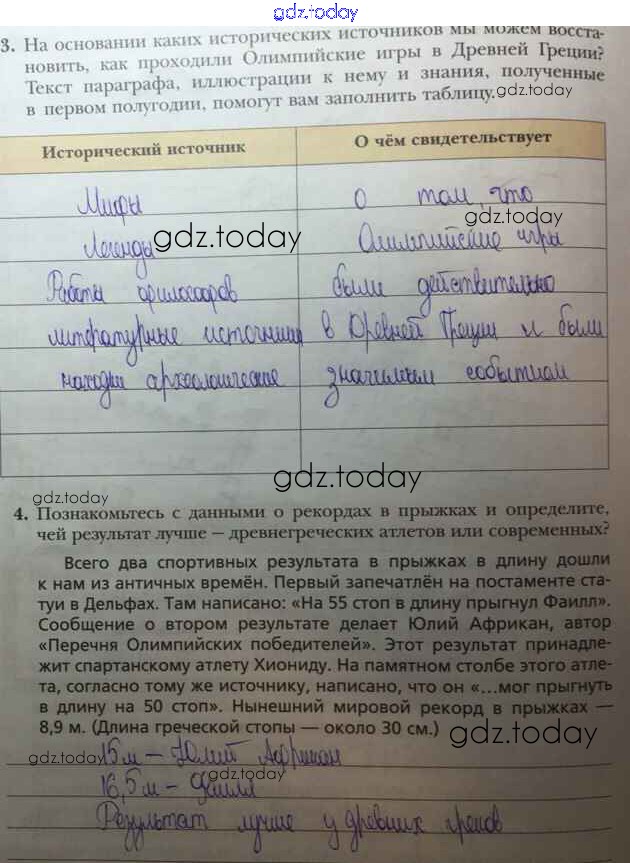 gdz.today
3. На основании каких исторических источников мы можем восста-
новить, как проходили Олимпийские игры в Древней Греции?
Текст параграфа, иллюстрации к нему и знания, полученные
в первом полугодии, помогут вам заполнить таблицу.
gdz.today
Исторический источник
О чём свидетельствует
Мифы
О том, что
gdz.today
Легенды
gdz.today
Олимпийские игры
Работы философов
были действительно
литературные источники
в Древней Греции и были
находки археологические
значимым событием
gdz.today
gdz.today
4. Познакомьтесь с данными о рекордах в прыжках и определите,
чей результат лучше — древнегреческих атлетов или современных?
Всего два спортивных результата в прыжках в длину дошли
к нам из античных времён. Первый запечатлён на постаменте ста-
туи в Дельфах. Там написано: «На 55 стоп в длину прыгнул Фаилл».
Сообщение о втором результате делает Юлий Африкан, автор
«Перечня Олимпийских победителей». Этот результат принадле-
жит спартанскому атлету Хиониду. На памятном столбе этого атле-
та, согласно тому же источнику, написано, что он «…мог прыгнуть
в длину на 50 стоп». Нынешний мировой рекорд в прыжках —
8,9 м. (Длина греческой стопы — около 30 см.)
gdz.today
gdz.today
15 м – Юлий Африкан
gdz.today
16,5 м – Фаилл
Результат лучше у древних греков